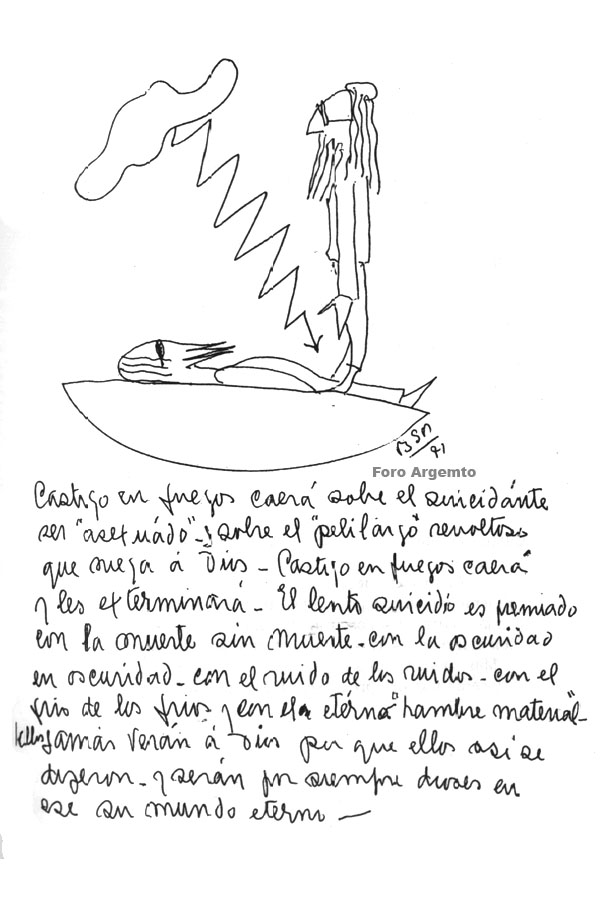 BSP
41
Foro Argemto
Castigo en fuegos caerá sobre el suicidánte
ser "asexuádo" - y sobre el "pelilárgo" revoltoso
que niega á Dios - Castigo en fuegos caerá
y les exterminará - El lento suicidio es premiado
con la muerte sin muerte - con la oscuridad
en oscuridad - con el ruido de los ruidos - con el
frio de los frios y con el a etérna "hambre material" -
ellos Jamás verán á Dios por que ellos así se
dijeron - y serán por siempre dioses en
ese su mundo eterno —